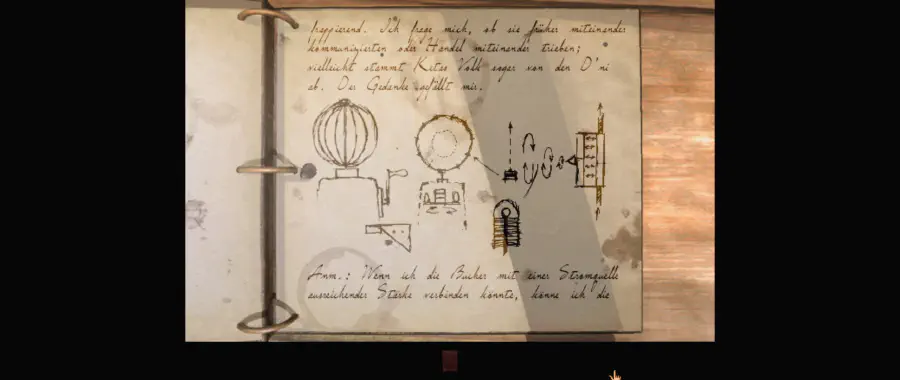 frappierend. Ich frage mich, ob sie früher miteinander
kommunizierten oder Handel miteinander trieben;
vielleicht stammt Katas Volk sogar von den D'ni
ab. Der Gedanke gefällt mir.
Anm.: Wenn ich die Bücher mit einer Stromquelle
ausreichender Stärke verbinden könnte, könne ich die